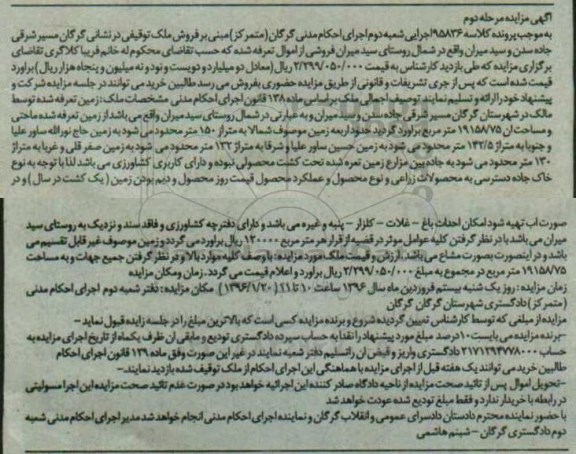 آگهی مزایده مرحله دوم
به موجب پرونده کلاسه ۹۵۸۳۶ اجرایی شعبه دوم اجرای احکام مدنی گرگان (متمرکز) مبنی بر فروش ملک توقیفی در نشانی گرگان مسیر شرقی
جاده سدن و سید میران واقع در شمال روستای سید میران فروشی از اموال تعرفه شده که حسب تقاضای محکوم له خانم فریبا کلاگری تقاضای
برگزاری مزایده که طی بازدید کارشناس به قیمت ۲/۲۹۹/۰۵۰/۰۰۰ ریال (معادل دو میلیارد و دویست و نود و نه میلیون و پنجاه هزار ریال) براورد
قیمت شده است که پس از جری تشریفات و قانونی از طریق مزایده حضوری بفروش می رسد طالبین خرید می توانند در جلسه مزایده شرکت و
پیشنهاد خود را ارائه و تسلیم نمایند توصیف اجمالی ملک براساس ماده ۱۳۸ قانون اجرای احکام مدنی مشخصات ملک: زمین تعرفه شده توسط
مالک در شهرستان گرگان مسیر شرقی جاده سدن و سید میران و به عبارتی در شمال روستای سید میران واقع می باشد از زمین تعرفه شده ماحتی
و مساحت ان ۱۹۱۵۸/۷۵ متر مربع براورد گردید حدود اربعه زمین موصوف شمالا به متراژ ۱۵۰ متر محدود می شود به زمین حاج نورالله ساور علیا
و جنوبا به متراژ ۱۴۲/۵ متر محدود می شود به زمین حسین ساور علیا و شرقا به متراژ ۱۳۲ متر محدود می شود به زمین صفر قلی و غربا به متراژ
۱۳۰ متر محدود می شود به جاده بین مزارع زمین تعرفه شده تحت کشت محصولی نبوده و دارای کاربری کشاورزی می باشد لذا با توجه به نوع
خاک جاده دسترسی به محصولات زراعی و نوع محصول و عملکرد محصول قیمت روز محصول و دیم بودن زمین ( یک کشت در سال ) و در
صورت اب تهیه شود امکان احداث باغ - غلات - کلزار - پنبه و غیره می باشد و دارای دفترچه کشاورزی و فاقد سند و نزدیک به روستای سید
میران می باشد با در نظر گرفتن کلیه عوامل موثر در قضیه از قرار هر متر مربع ۱۲۰۰۰۰ ریال براورد می گردد و زمین موصوف غیر قابل تقسیم می
باشد و در اینصورت بصورت مشاع می باشد. ارزش و قیمت ملک مورد مزایده: با وصف کلیه موارد بالا و در نظر گرفتن جمیع جهات و به مساحت
۱۹۱۵۸/۷۵ متر مربع در مجموع به مبلغ ۲/۲۹۹/۰۵۰/۰۰۰ ریال براورد و اعلام قیمت می گردد. زمان ومکان مزایده
زمان مزایده: روز یک شنبه بیستم فروردین ماه سال ۱۳۹۶ ساعت ۱۰ تا ۱۱ (۱۳۹۶/۱/۲۰) مکان مزایده: دفتر شعبه دوم اجرای احکام مدنی
(متمرکز) دادگستری شهرستان گرگان گرگان
مزایده از مبلغی که توسط کارشناس تعیین گردیده شروع و برنده مزایده کسی است که بالاترین مبلغ را در جلسه زایده قبول نماید -
-برنده مزایده می بایست ۱۰ درصد مبلغ مورد پیشنهاد را نقدا به حساب سپرده دادگستری تودیع و مابقی ان ظرف یکماه از تاریخ اجرای مزایده به
حساب ۲۱۷۱۲۹۴۷۷۸۰۰۰ دادگستری واریز و فیض ان را تسلیم دفتر شعبه نمایند در غیر این صورت وفق ماده ۱۲۹ قانون اجرای احکام
طالبین خرید می توانند یک هفته قبل از اجرای مزایده با هماهنگی این اجرای احکام از ملک توقیف شده بازدید نمایند-
-تحویل اموال پس از تائید صحت مزایده از ناحیه دادگاه صادر کننده این اجرائیه خواهد بود در صورت عدم تائید صحت مزایده این اجرا مسولیتی
در رابطه با خریدار ندارد و فقط مبلغ تودیع شده عودت خواهد شد
با حضور نماینده محترم دادستان دادسرای عمومی و انقلاب گرگان و نماینده اجرای احکام مدنی انجام خواهد شد مدیر اجرای احکام مدنی شعبه
دوم دادگستری گرگان - شبنم هاشمی